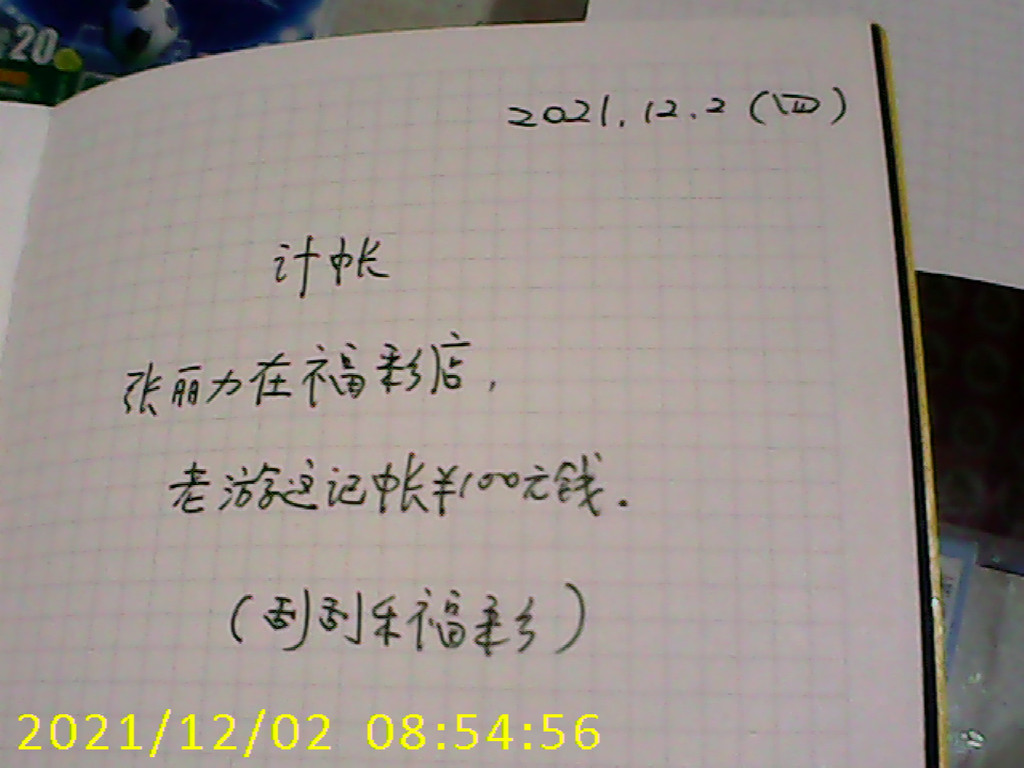 20
2021.12.2(四)
计帐
张丽力在福彩店,
老游这记帐¥100元钱.
(刮刮乐福彩)
2021/12/02 08:54:56